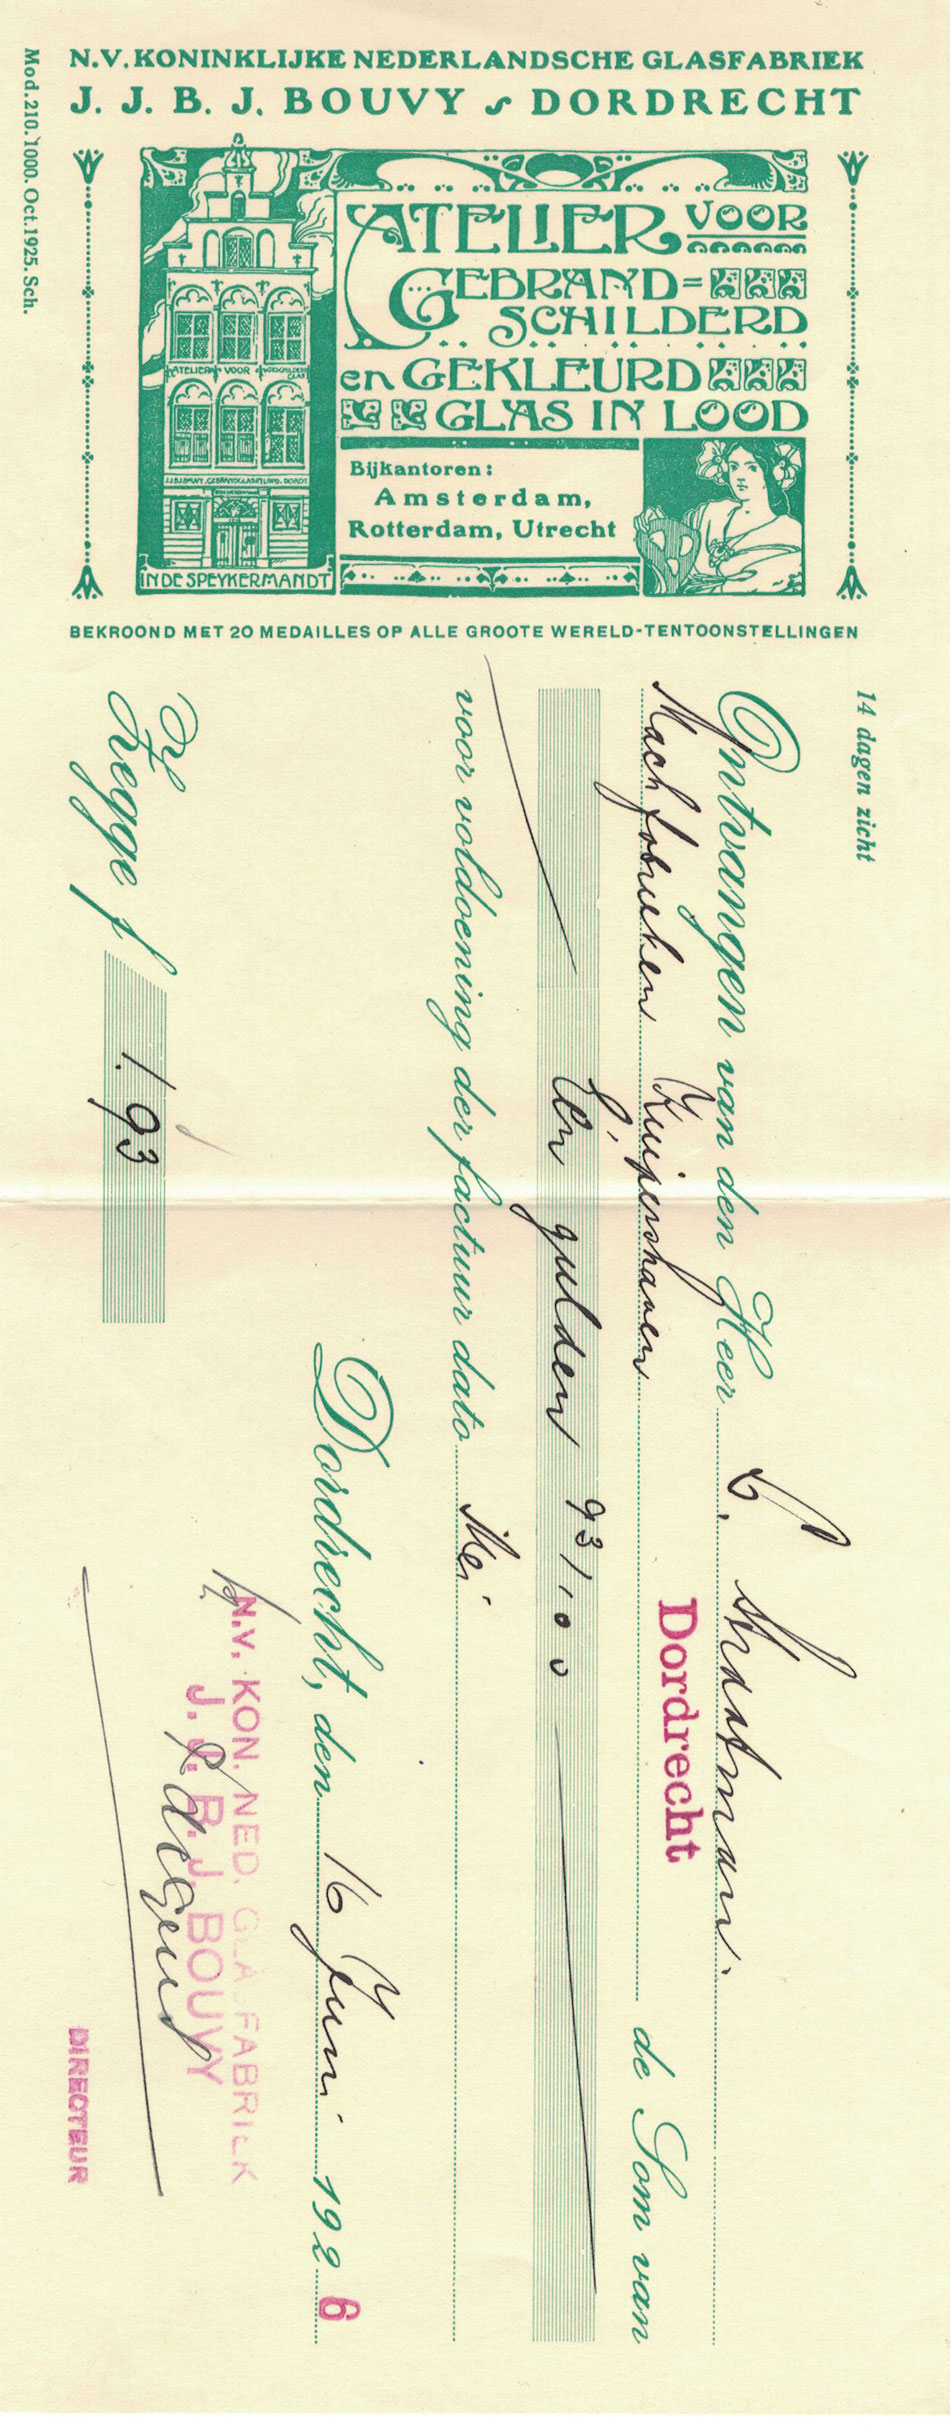 Mod. 210. 1000. Oct. 1925. Sch.
N.V. KONINKLIJKE NEDERLANDSCHE GLASFABRIEK
J. J. B. J. BOUVY DORDRECHT
ATELIER VOOR
GEBRAND=
SCHILDERD
en GEKLEURD
GLAS IN LOOD
ATELIER VOOR
J.J.B.J. BOUVY, GEBRAND GLAS IN LOOD. DORDT
IN DE SPEYKERMANDT
Bijkantoren:
Amsterdam,
Rotterdam, Utrecht
BEKROOND MET 20 MEDAILLES OP ALLE GROOTE WERELD-TENTOONSTELLINGEN
14 dagen zicht
Ontvangen van den Heer C. Straatman.
Machfabrieken Kuipershaven Dordrecht de Som van
Een gulden 93/100
voor voldoening der factuur dato Mei
Dordrecht, den 16 Juni 1926
Zegge f 1.93
N.V. KON. NED. GLASFABRIEK
J. J. B. J. BOUVY
DIRECTEUR